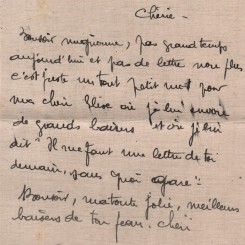 Chérie -
Bonsoir mignonne, pas grand temps
aujourd'hui et pas de lettre non plus
c'est juste un tout petit mot pour
ma chérie Élise où j'lui envoie
de grands baisers et où j'lui
dit " Il me faut une lettre de toi
demain, sans quoi gare "
Bonsoir, ma toute jolie, meilleurs
baisers de ton Jean. chéri